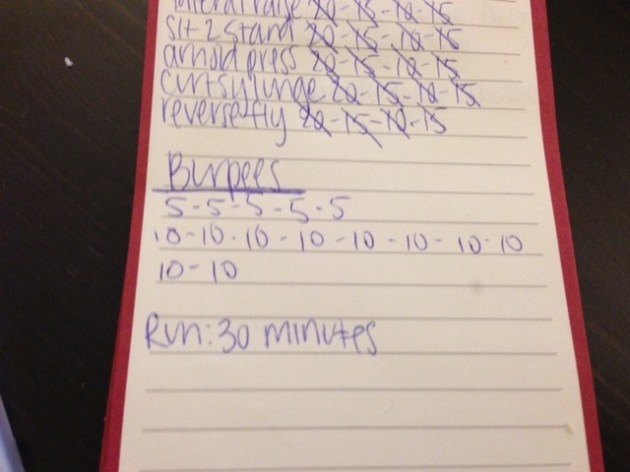 lateral raise 20-15-10-15
sit 2 stand 20-15-10-15
arnold press 20-15-10-15
curtsy lunge 20-15-10-15
reverse fly 20-15-10-15
Burpees
5-5-5-5-5
10-10-10-10-10-10-10-10
10-10
Run: 30 minutes